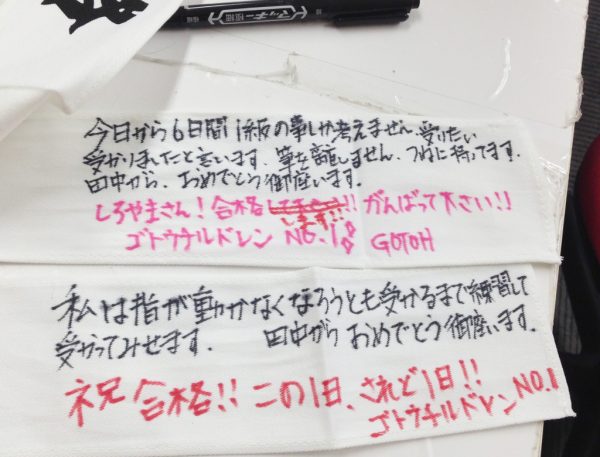 今日から6日間1級の事しか考えません、受かりたい
受かりましたと言います。筆を離しません、つねに持ってます。
田中から、おめでとう御座います。
しろやまさん！合格します!!がんばって下さい!!
ゴトウチルドレン NO.1 GOTOH
私は指が動かなくなろうとも受かるまで練習して
受かってみせます。 田中から おめでとう御座います。
祝 合格!! この1日、されど1日!!
ゴトウチルドレン NO.1